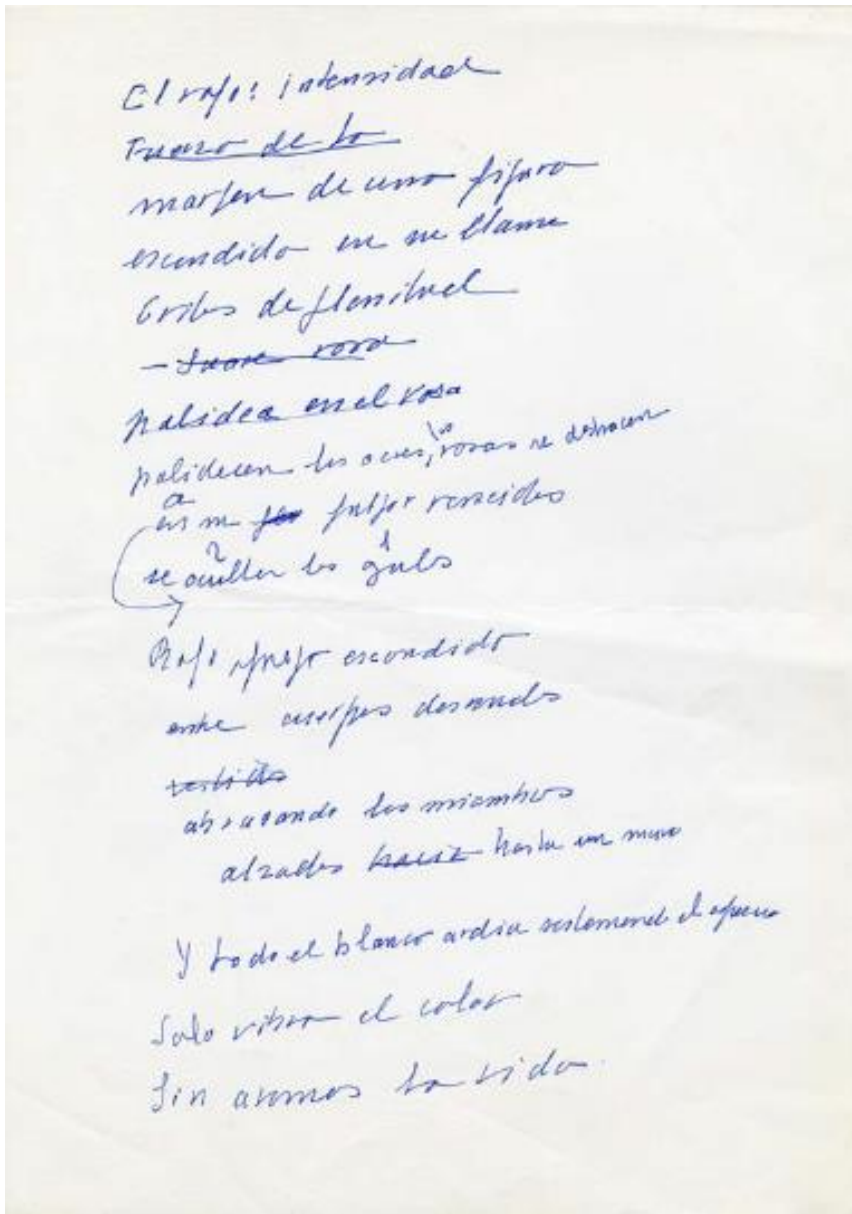 El rojo: intensidad
Fuerza de la
margen de una figura
escondida en su llama
Gritos de plenitud
- Suave rosa
palidea en el rosa
palidecen los ocres, los rosas se deshacen
a
en su fulgor vencidos
2 1
se ocultan los azules
Rojo fuego escondido
entre cuerpos desnudos
vestidos
abrasando los miembros
alzados hacia hasta un muro
Y todo el blanco ardía reclamando el
Solo vibra el color
Sin la vida.